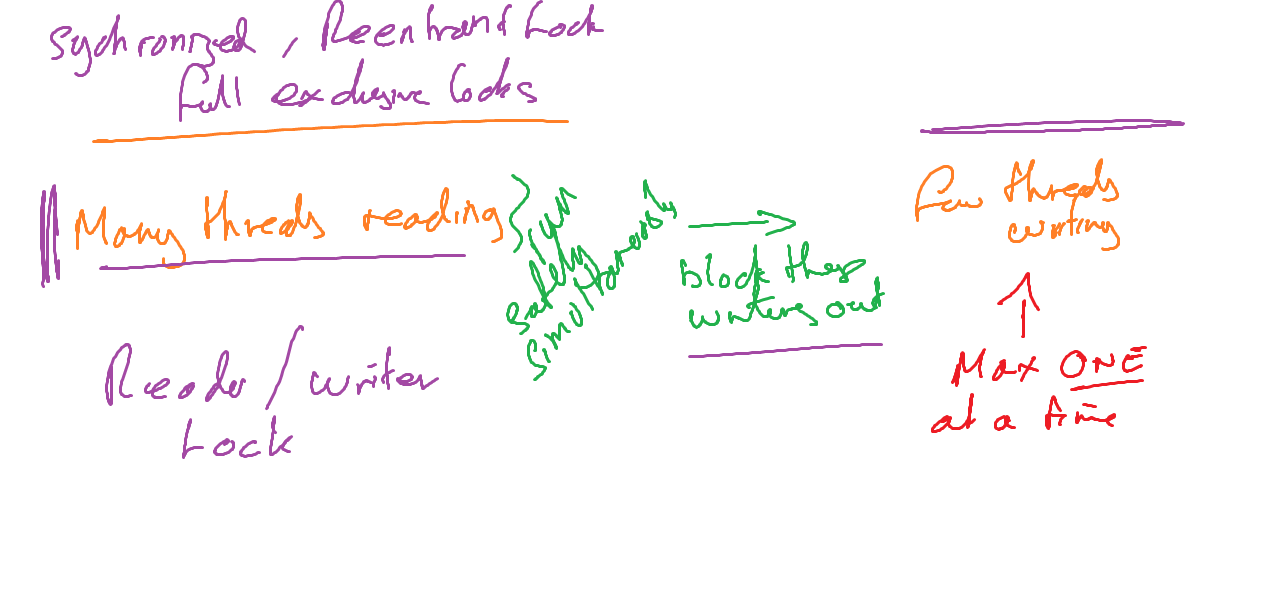 Sychronized, Reentrant Lock
full exclusive locks
Many threds reading
run
safely
simultaneously
block the
writers out
Few threds
writing
Max ONE
at a time
Reader/writer
Lock